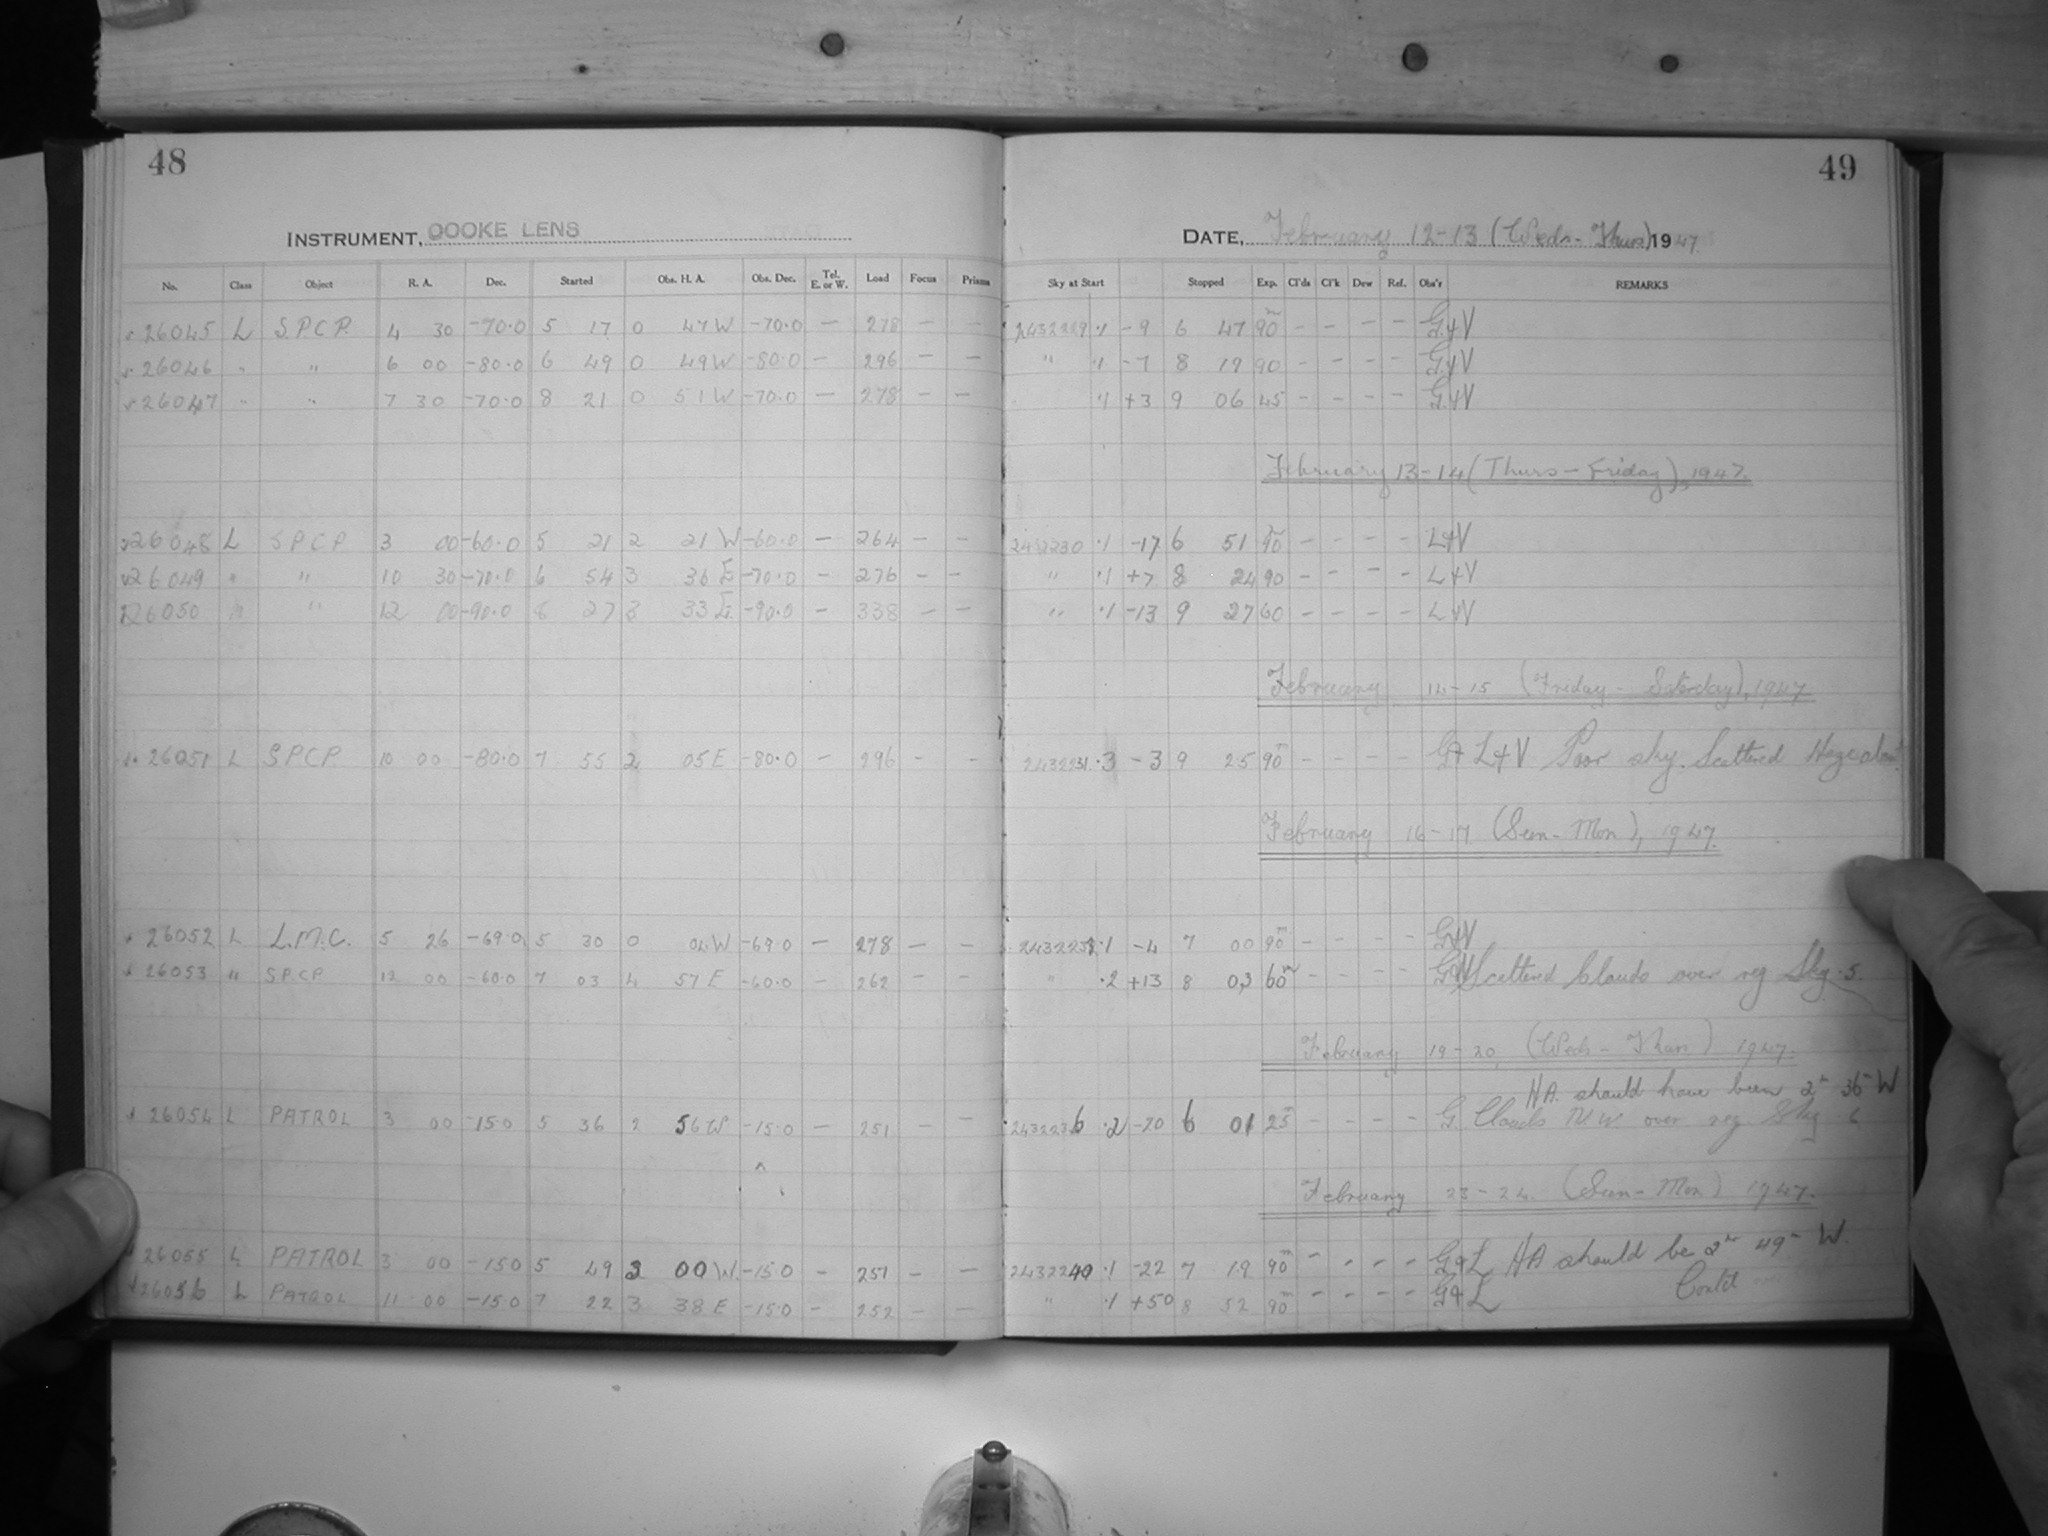 48
49
INSTRUMENT, COOKE LENS
DATE, February 12-13 (Weds-Thurs) 1947
No. Class Object R. A. Dec. Started Obs. H. A. Obs. Dec. Tel. E. or W. Load Focus Prisms Sky at Start Stopped Exp. Cl'ds Cl'k Dew Ref. Obs'r REMARKS
26045 L S.P.C.P. 4 30 -70.0 5 17 0 47 W -70.0 – 278 – – 2432229 .1 -9 6 47 90m – – – – G.+V
26046 " " 6 00 -80.0 6 49 0 49 W -80.0 – 296 – – " .1 -7 8 19 90 – – – – G.+V
26047 " " 7 30 -70.0 8 21 0 51 W -70.0 – 278 – – .1 +3 9 06 45 – – – – G.+V
February 13-14 (Thurs-Friday), 1947.
26048 L S P C P 3 00 -60.0 5 21 2 21 W -60.0 – 264 – – 2432230 .1 -17 6 51 90m – – – – L+V
26049 " " 10 30 -70.0 6 54 3 36 E -70.0 – 276 – – " .1 +7 8 24 90 – – – – L+V
26050 " " 12 00 -90.0 8 27 3 33 E. -90.0 – 338 – – " .1 -13 9 27 60 – – – – L+V
February 14-15 (Friday-Saturday), 1947
26051 L S P C P 10 00 -80.0 7 55 2 05 E -80.0 – 296 – – 2432231 .3 -3 9 25 90m – – – – L+V Poor sky. Scattered Haze
February 16-17 (Sun-Mon), 1947.
26052 L L.M.C. 5 26 -69.0 5 30 0 04 W -69.0 – 278 – – .1 -4 7 00 90m – – – – G+V
26053 " S P C P 12 00 -60.0 7 03 4 57 E -60.0 – 262 – – " .2 +13 8 03 60m – – – – Scattered Clouds over reg Sky .5
February 19-20 (Weds-Thurs) 1947.
HA. should have been 2h 36m W
26054 L PATROL 3 00 -15.0 5 36 2 56 W -15.0 – 251 – 2432236 .2 -20 6 01 25m – – – – G. Clouds N.W. over reg. Sky 6
February 23-24. (Sun-Mon) 1947.
26055 L PATROL 3 00 -15.0 5 49 3 00 W. -15.0 – 251 – – 2432240 .1 -22 7 19 90m – – – – G+L HA should be 2h 49m W.
26056 L PATROL 11 00 -15.0 7 22 3 38 E -15.0 – 252 – – " .1 +50 8 52 90m – – – – G+L Cont'd